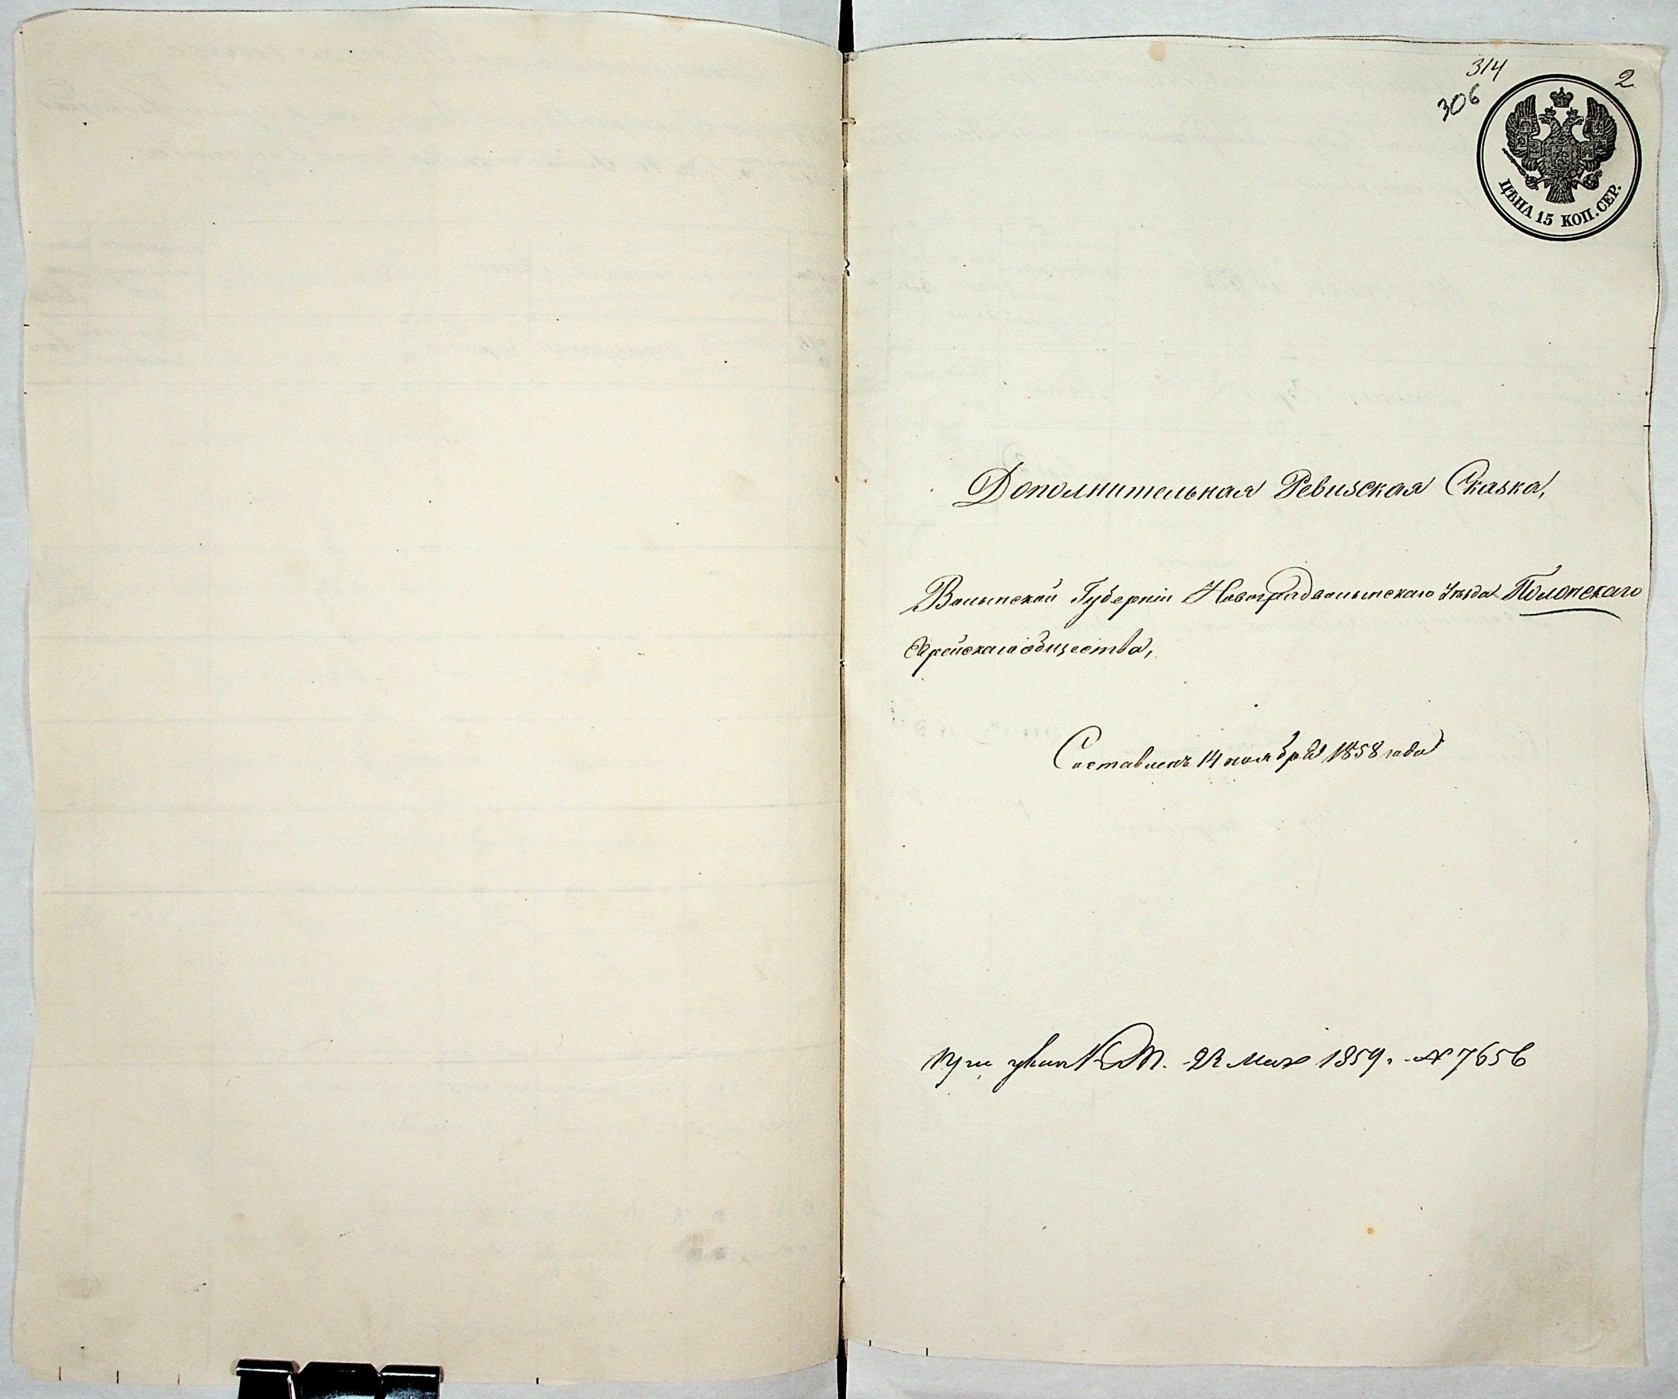 314
306
2
ЦѢНА 15 КОП. СЕР.
Дополнительная Ревизская Сказка,
Волынской Губерніи Новоградволынскаго Уѣзда Полонскаго
Еврейскаго общества,
Составлена 14 ноября 1858 года
При указѣ 22 Мая 1859. № 7656